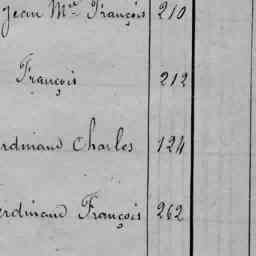 Jean Mie François 210
François 212
rdinand Charles 124
erdinand François 262